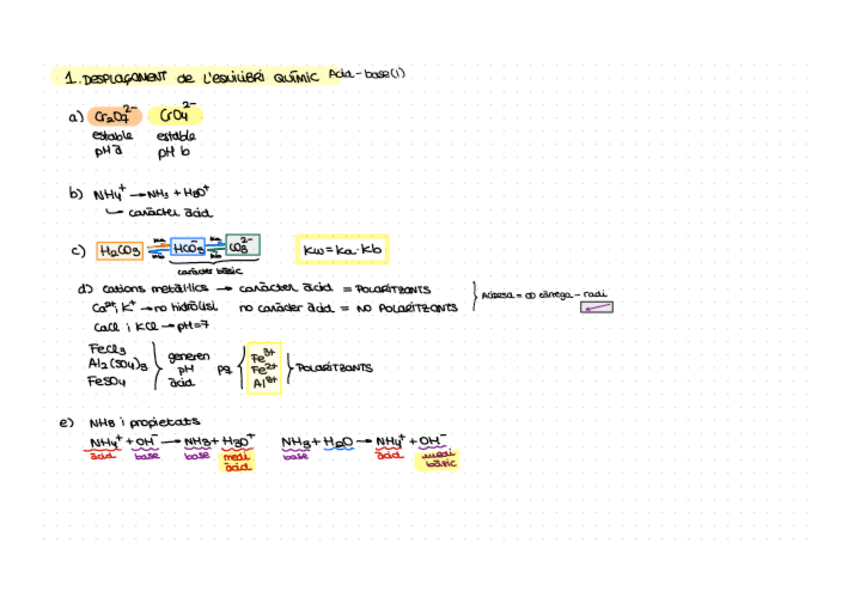 1. DESPLAÇAMENT de L'EQUILIBRI QUÍMIC Àcid-base(1)
a) Cr₂O₇²⁻ CrO₄²⁻
estable estable
pH à pH b
b) NH₄⁺ → NH₃ + H₃O⁺
caràcter àcid
c) H₂CO₃ HCO₃⁻ CO₃²⁻ Kw = Ka · Kb
Ka Ka
Kb Kb
caràcter bàsic
d) cations metàl·lics → caràcter àcid = POLARITZANTS
Ca²⁺, K⁺ → no hidròlisi no caràcter àcid = NO POLARITZANTS
Acidesa = ∞ càrrega - radi
CaCl i KCl → pH=7
FeCl₃
Al₂(SO₄)₃
FeSO₄
generen
pH
àcid
pq
Fe³⁺
Fe²⁺
Al³⁺
POLARITZANTS
e) NH₃ i propietats
NH₄⁺ + OH⁻ → NH₃ + H₃O⁺ NH₃ + H₂O → NH₄⁺ + OH⁻
àcid base base medi àcid base àcid medi bàsic